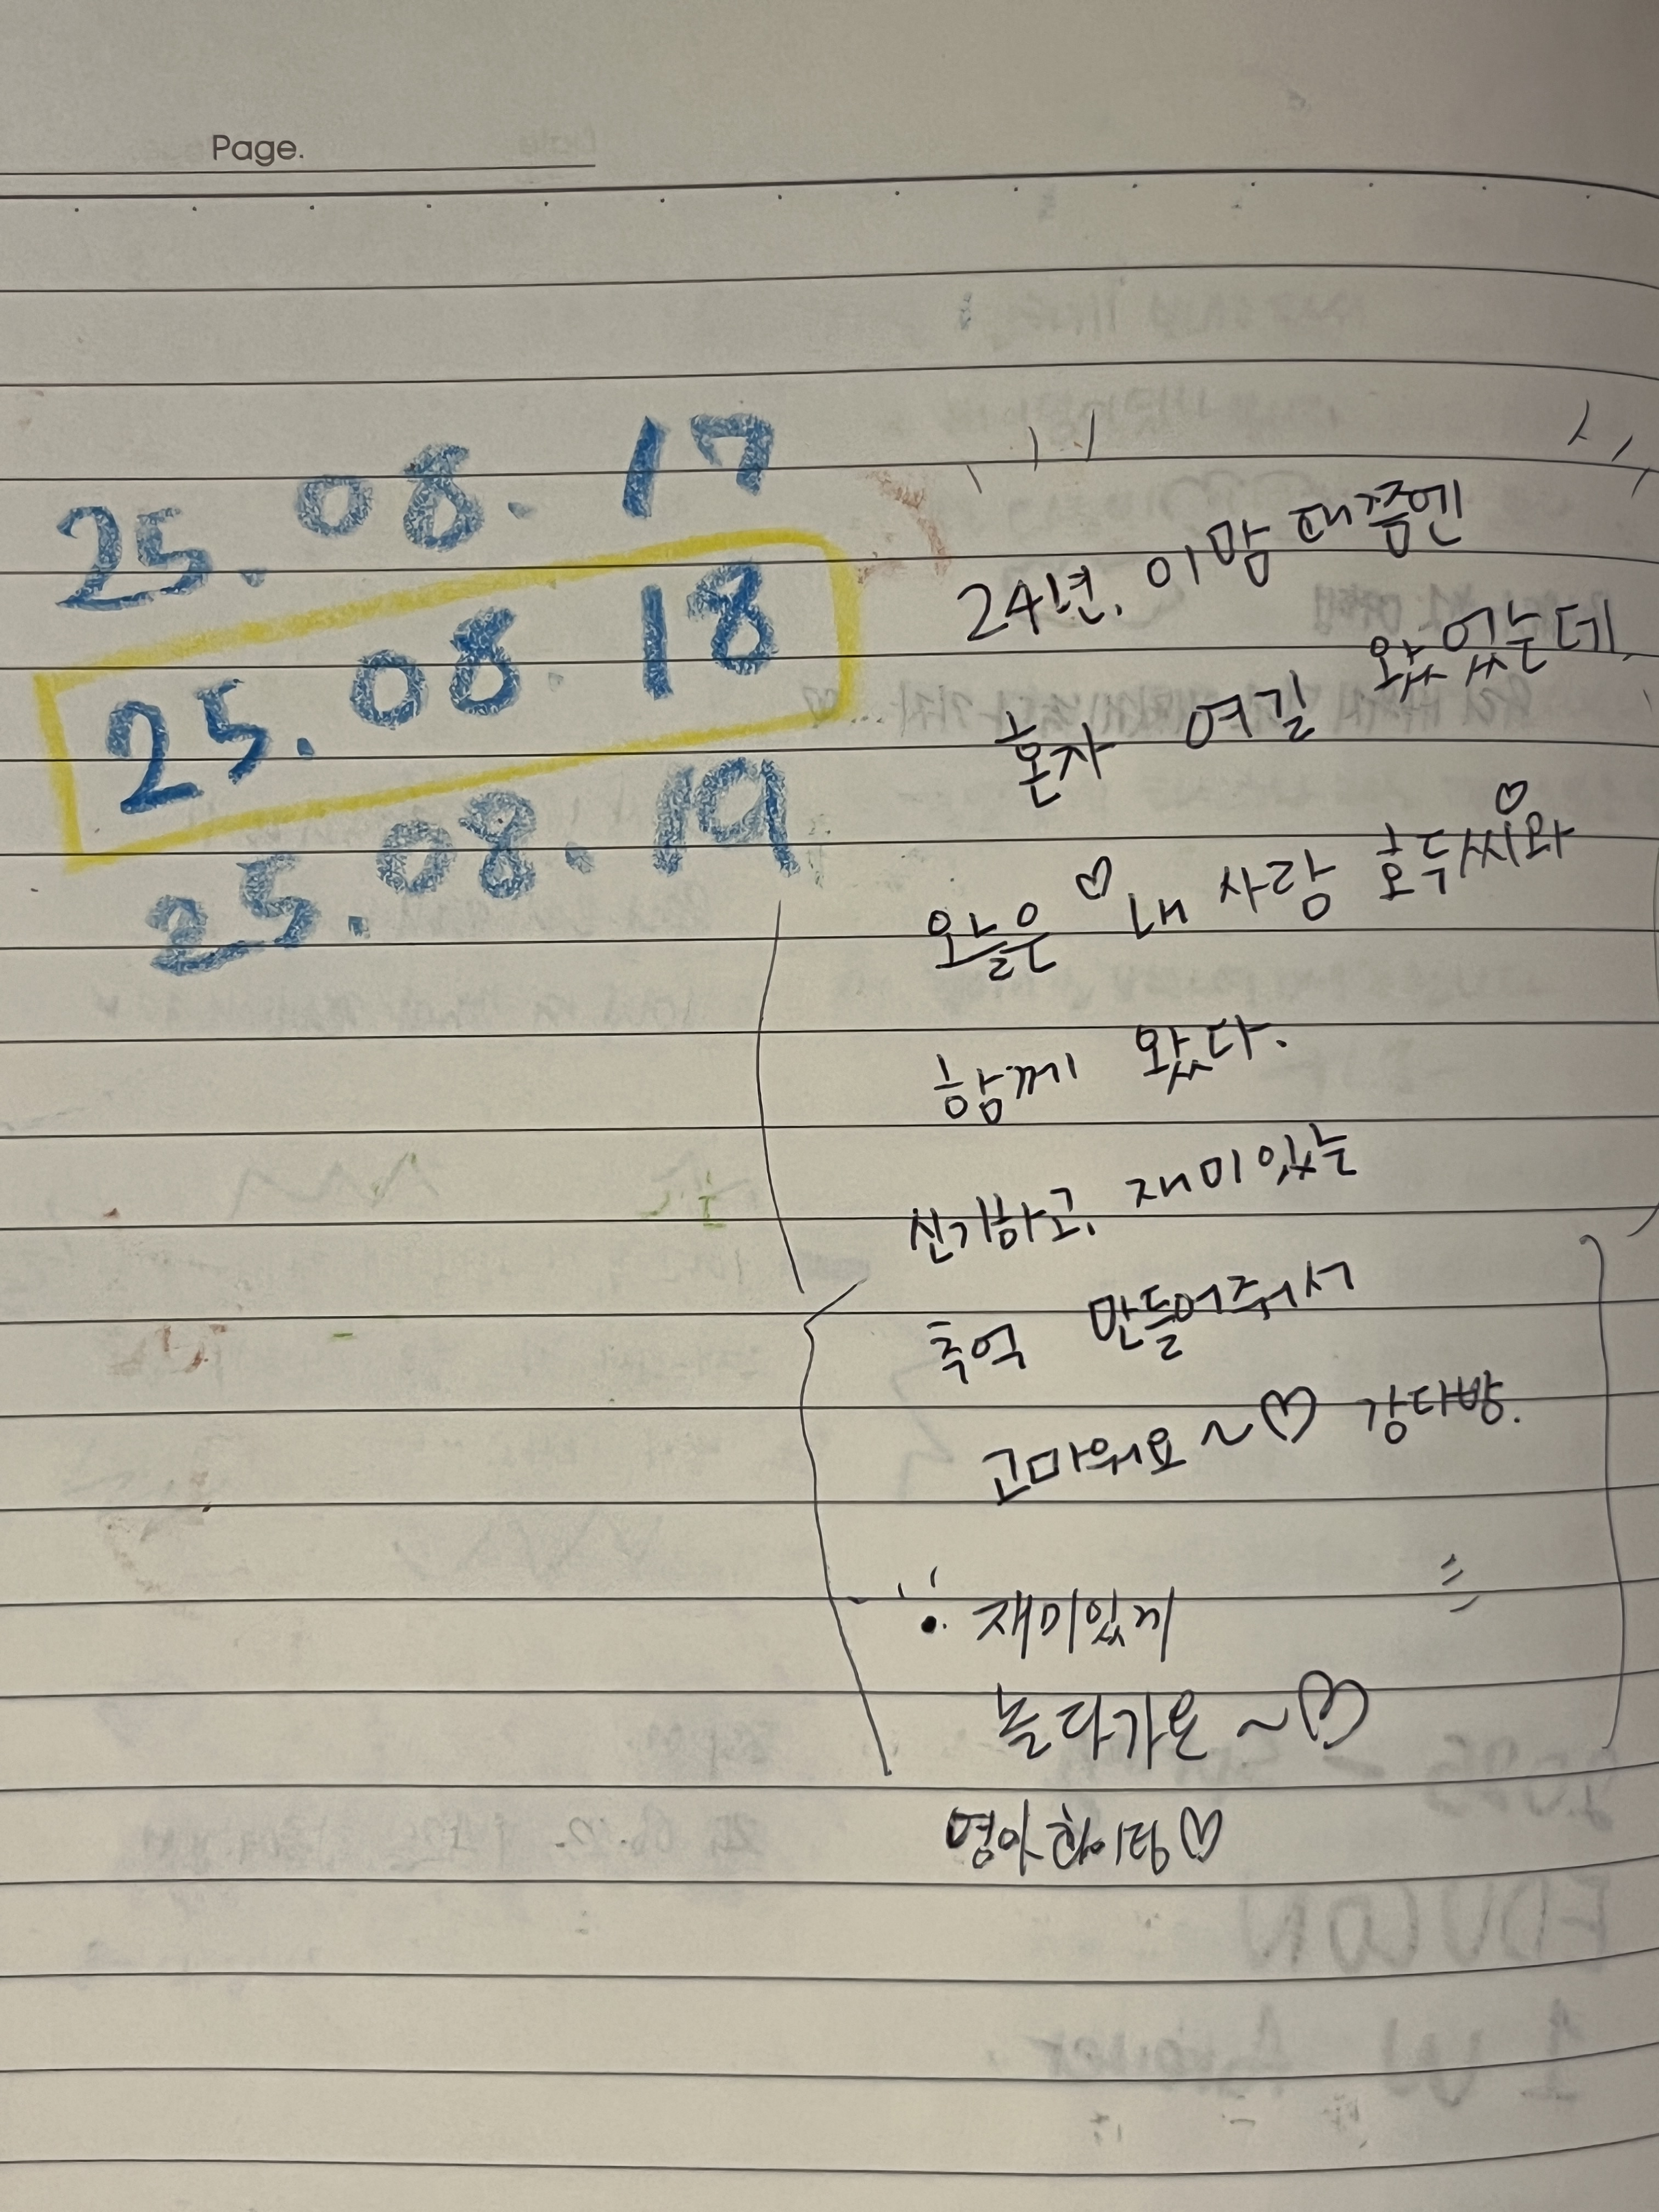 Page.
25. 08. 17
25. 08. 18
25. 08. 19
24년. 이맘때쯤엔
혼자 여길 왔었는데,
오늘은 ♡내 사랑 호두씨♡와
함께 왔다.
신기하고, 재미있는
추억 만들어줘서
고마워요~♡ 강다방.
재미있게
놀다가요~♡
영아 화이팅♡